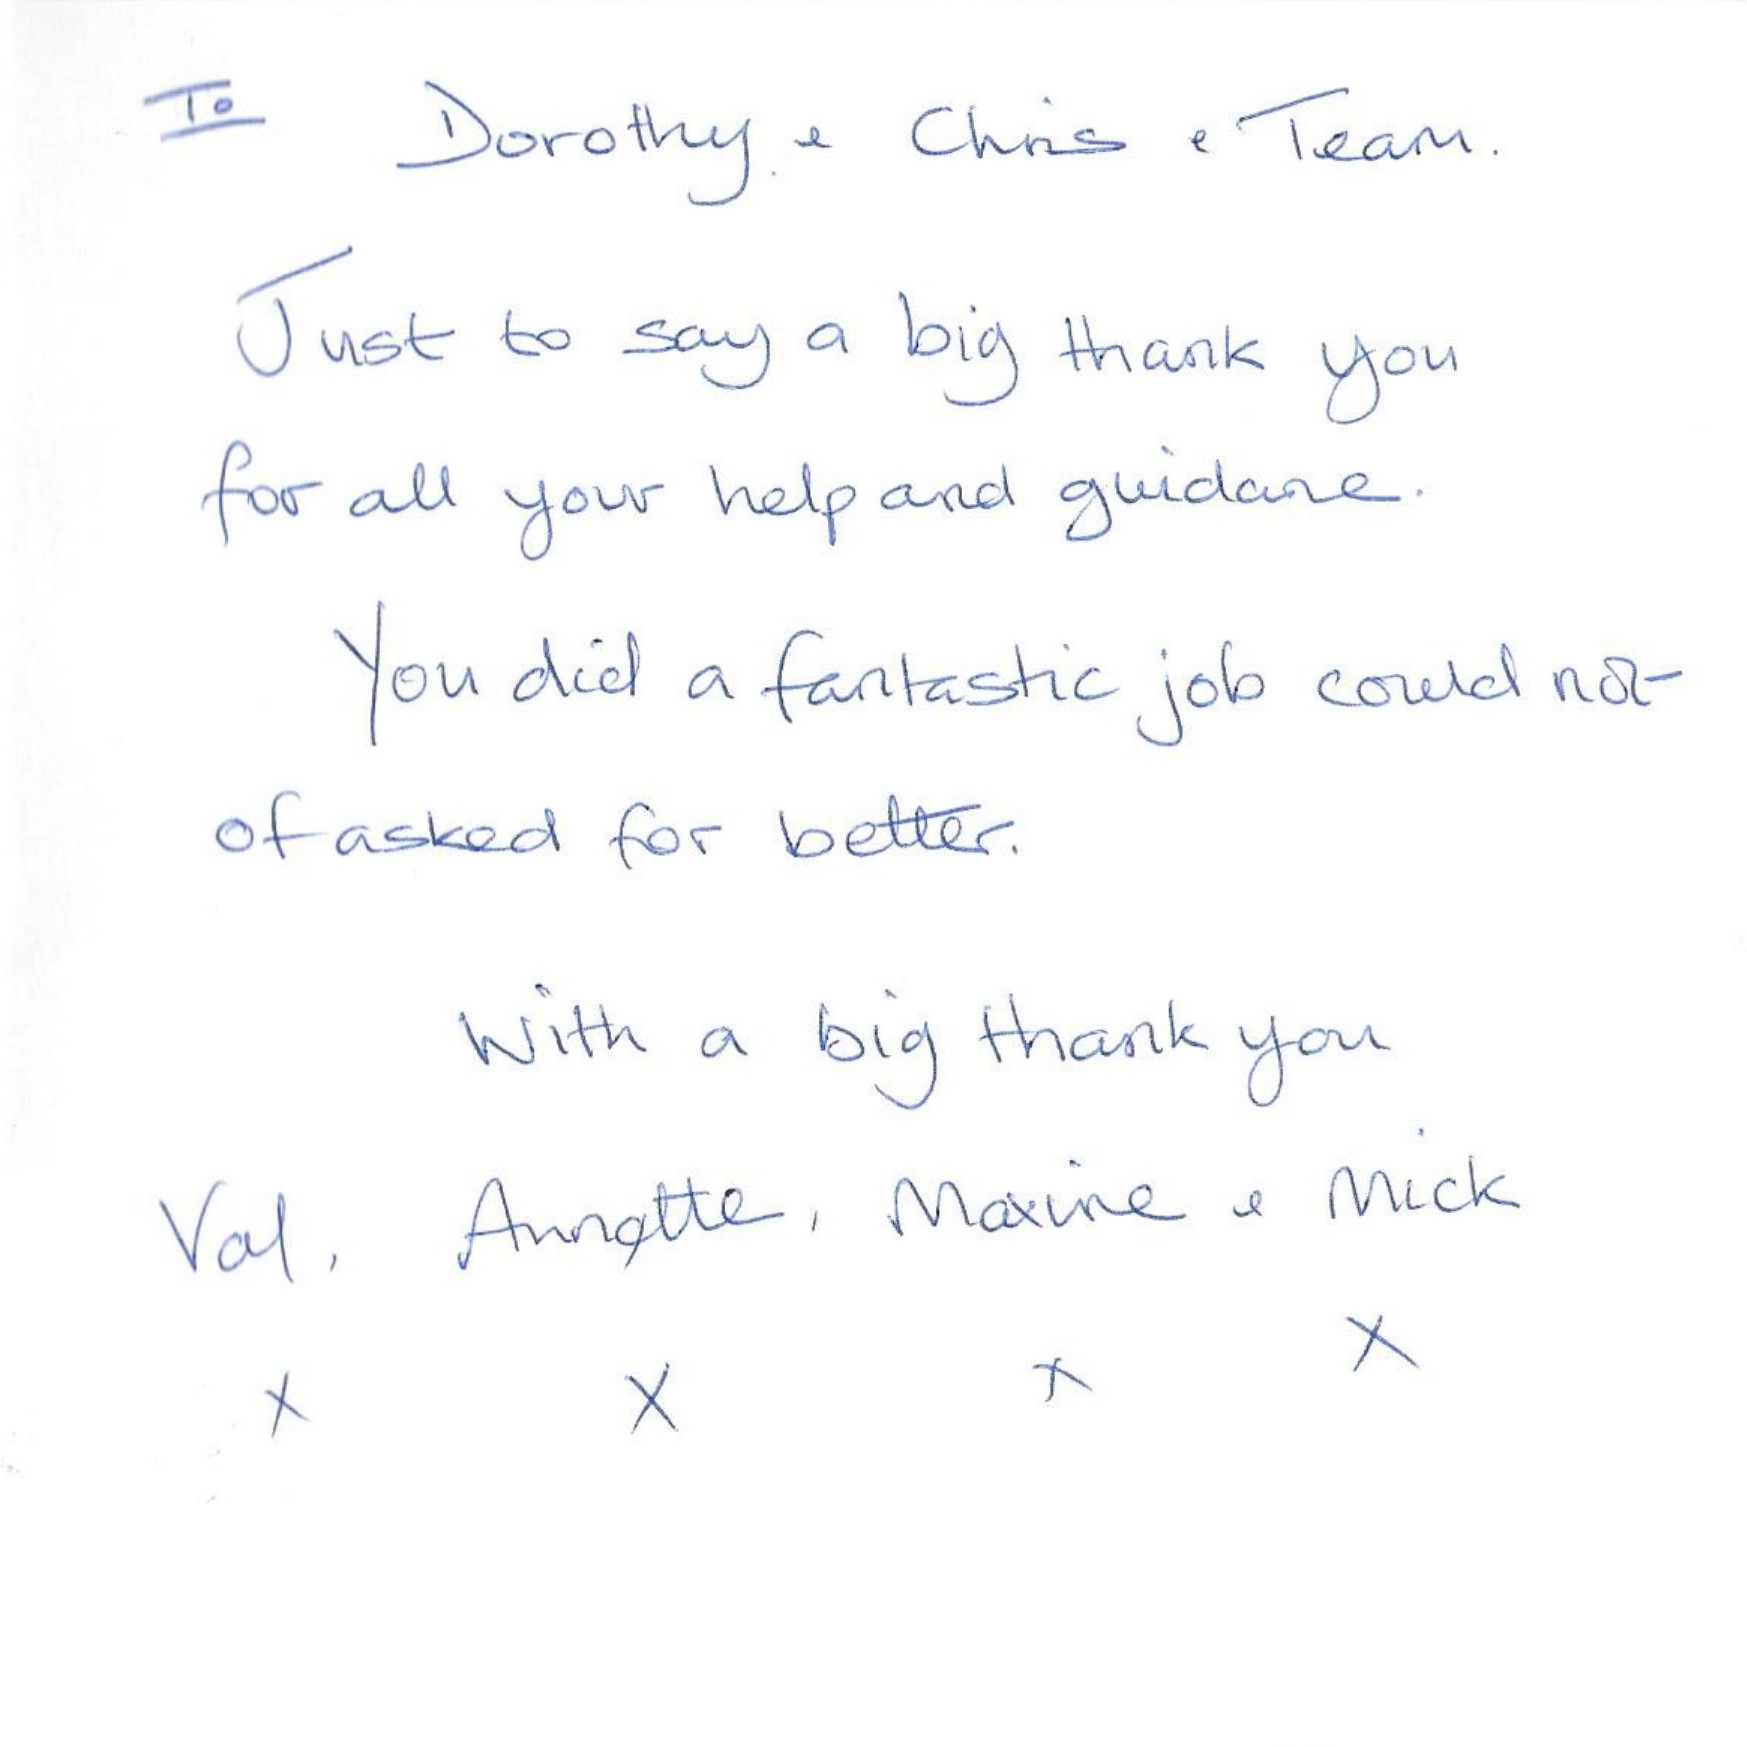 To Dorothy & Chris & Team.
Just to say a big thank you
for all your help and guidance.
You did a fantastic job could not
of asked for better.
With a big thank you
Val, Annette, Maxine & Mick
x x x x